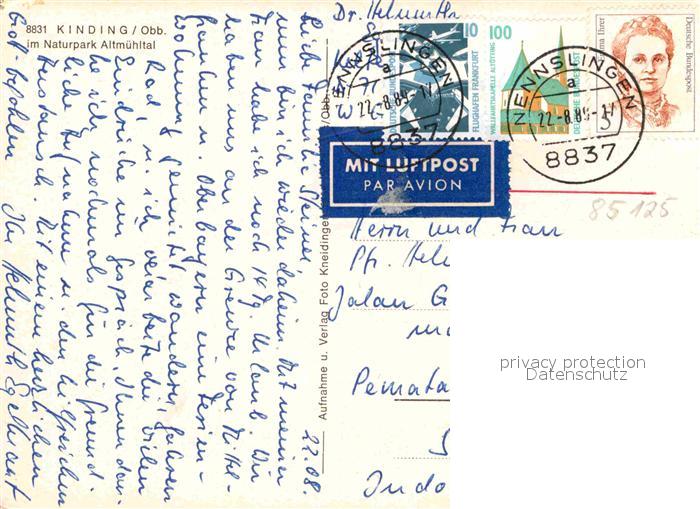 8831 KINDING/Obb.
im Naturpark Altmühltal
Dr. Helmuth
22.08.
Liebe Familie Steiner,
nun bin ich wieder daheim. Mit meiner
Frau habe ich noch 14 Tg. Urlaub. Wir
haben uns an der Grenze von Mittel-
franken, Oberbayern eine Ferien-
Wohnung gemietet, wandern, fahren
Rad u. ich verarbeite die vielen
Eindrücke im Gespräch. Ihnen dan-
ke ich nochmals für die freund-
liche Aufnahme u. den hilfreichen
Austausch. Mit einem herzlichen
Gott befohlen Ihr Helmuth
Aufnahme u. Verlag Foto Kneidinger
/Obb.
10
DEUTSCHE BUNDESPOST
FLUGHAFEN FRANKFURT
100
WALLFAHRTSKAPELLE ALTÖTTING
DEUTSCHE BUNDESPOST
Emma Ihrer
Deutsche Bundespost
5
NENNSLINGEN
a
22.-8.89-17
8837
NENNSLINGEN
a
22.-8.89-17
8837
MIT LUFTPOST
PAR AVION
85125
Herrn und Frau
Pf. Hel
Jalan G
Pemata
S
Indo
privacy protection
Datenschutz